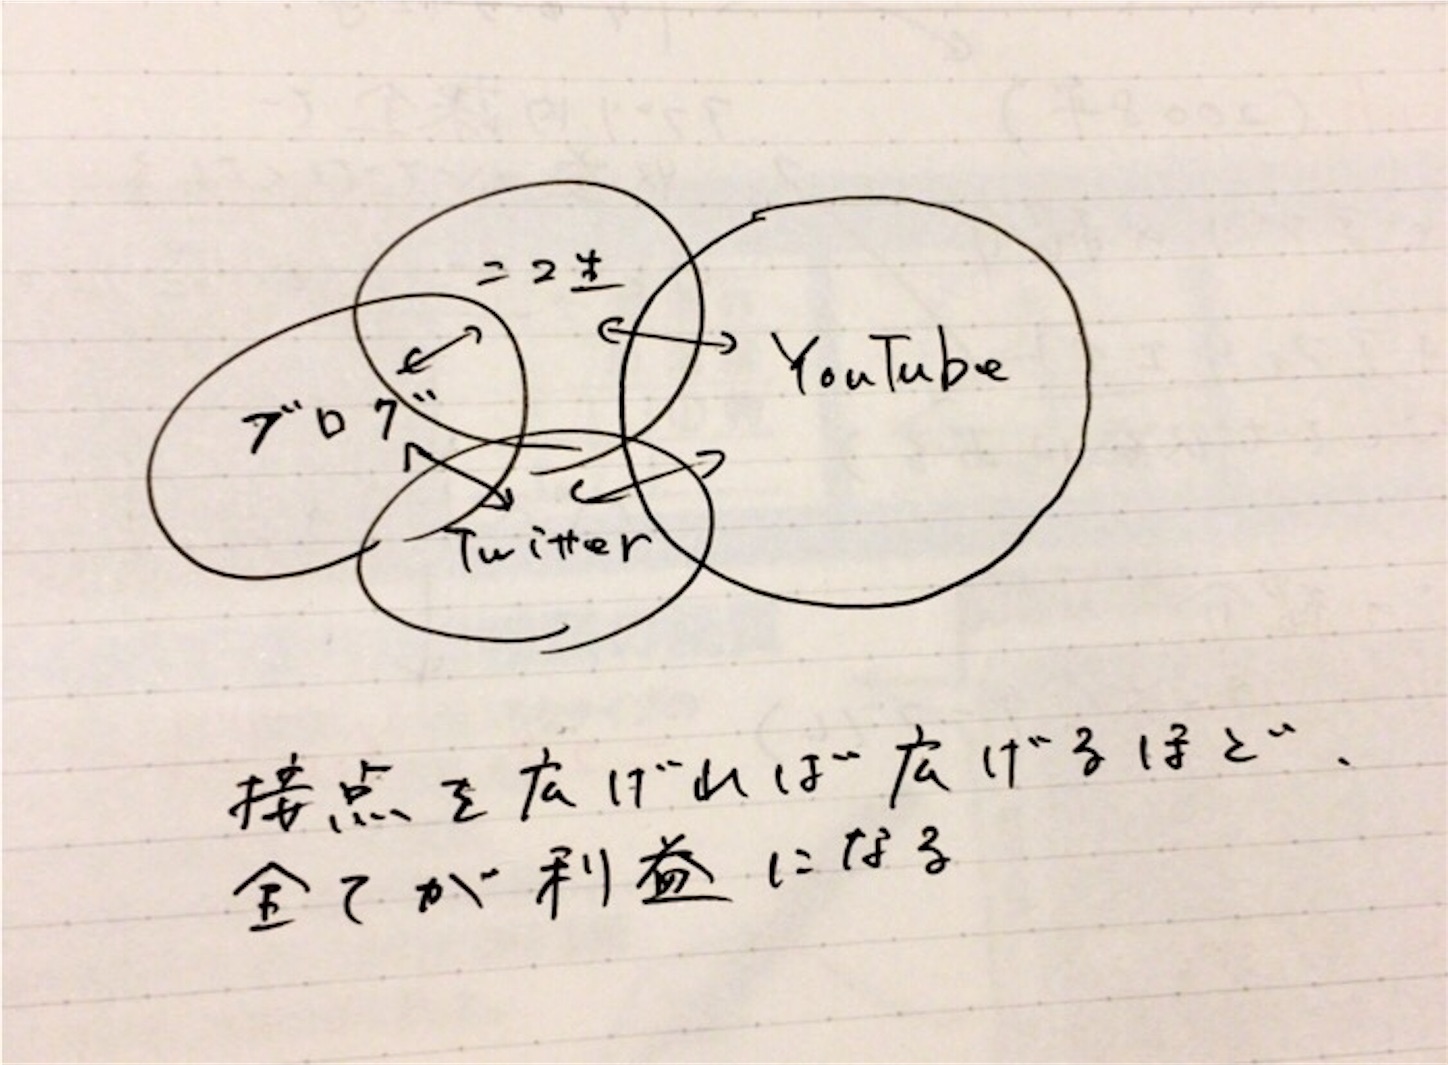 ニコ生
YouTube
ブログ
Twitter
接点を広げれば広げるほど、
全てが利益になる